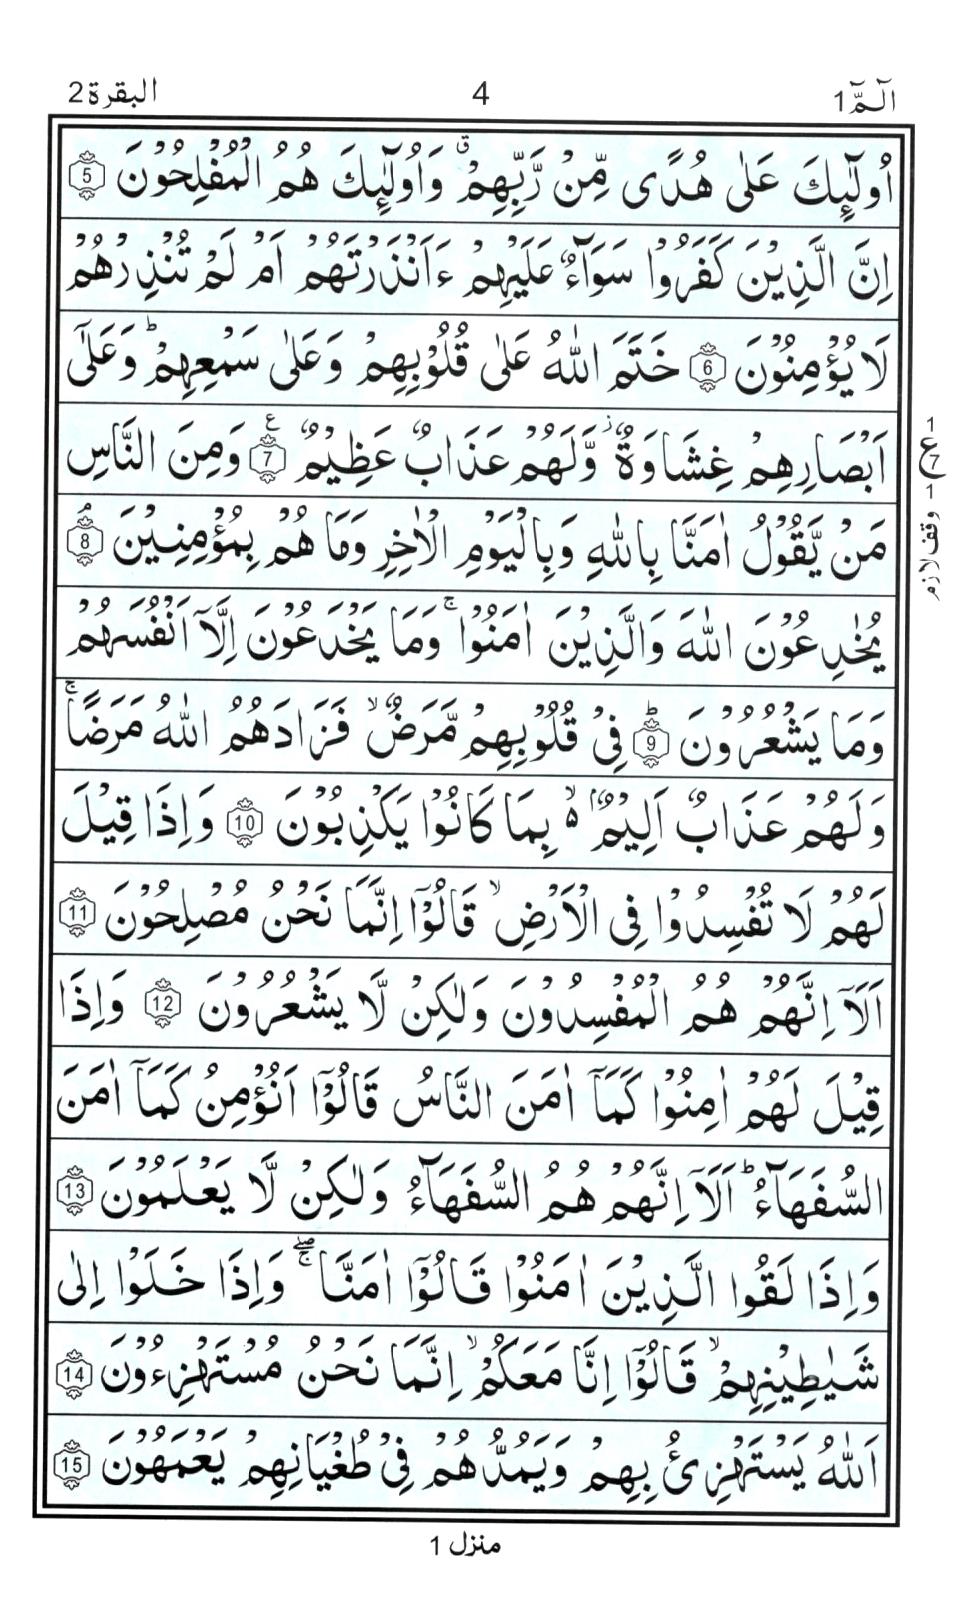 الٓمّٓ 1
4
البقرة 2
اُولٰٓئِكَ عَلٰى هُدًى مِّنْ رَّبِّهِمْ ۗ وَاُولٰٓئِكَ هُمُ الْمُفْلِحُوْنَ 5
اِنَّ الَّذِيْنَ كَفَرُوْا سَوَآءٌ عَلَيْهِمْ ءَاَنْذَرْتَهُمْ اَمْ لَمْ تُنْذِرْهُمْ
لَا يُؤْمِنُوْنَ 6 خَتَمَ اللّٰهُ عَلٰى قُلُوْبِهِمْ وَعَلٰى سَمْعِهِمْ ؕ وَعَلٰٓى
اَبْصَارِهِمْ غِشَاوَةٌ ز وَّلَهُمْ عَذَابٌ عَظِيْمٌ 7 ع وَمِنَ النَّاسِ
مَنْ يَّقُوْلُ اٰمَنَّا بِاللّٰهِ وَبِالْيَوْمِ الْاٰخِرِ وَمَا هُمْ بِمُؤْمِنِيْنَ 8 ۘ
يُخٰدِعُوْنَ اللّٰهَ وَالَّذِيْنَ اٰمَنُوْا ۚ وَمَا يَخْدَعُوْنَ اِلَّآ اَنْفُسَهُمْ
وَمَا يَشْعُرُوْنَ 9 ؕ فِيْ قُلُوْبِهِمْ مَّرَضٌ ۙ فَزَادَهُمُ اللّٰهُ مَرَضًا ۚ
وَلَهُمْ عَذَابٌ اَلِيْمٌۢ ۙ۬ بِمَا كَانُوْا يَكْذِبُوْنَ 10 وَاِذَا قِيْلَ
لَهُمْ لَا تُفْسِدُوْا فِى الْاَرْضِ ۙ قَالُوْٓا اِنَّمَا نَحْنُ مُصْلِحُوْنَ 11
اَلَآ اِنَّهُمْ هُمُ الْمُفْسِدُوْنَ وَلٰكِنْ لَّا يَشْعُرُوْنَ 12 وَاِذَا
قِيْلَ لَهُمْ اٰمِنُوْا كَمَآ اٰمَنَ النَّاسُ قَالُوْٓا اَنُؤْمِنُ كَمَآ اٰمَنَ
السُّفَهَآءُ ؕ اَلَآ اِنَّهُمْ هُمُ السُّفَهَآءُ وَلٰكِنْ لَّا يَعْلَمُوْنَ 13
وَاِذَا لَقُوا الَّذِيْنَ اٰمَنُوْا قَالُوْٓا اٰمَنَّا ۖۚ وَاِذَا خَلَوْا اِلٰى
شَيٰطِيْنِهِمْ ۙ قَالُوْٓا اِنَّا مَعَكُمْ ۙ اِنَّمَا نَحْنُ مُسْتَهْزِءُوْنَ 14
اَللّٰهُ يَسْتَهْزِئُ بِهِمْ وَيَمُدُّهُمْ فِيْ طُغْيَانِهِمْ يَعْمَهُوْنَ 15
منزل 1
1
ع
7
1
وقف لازم